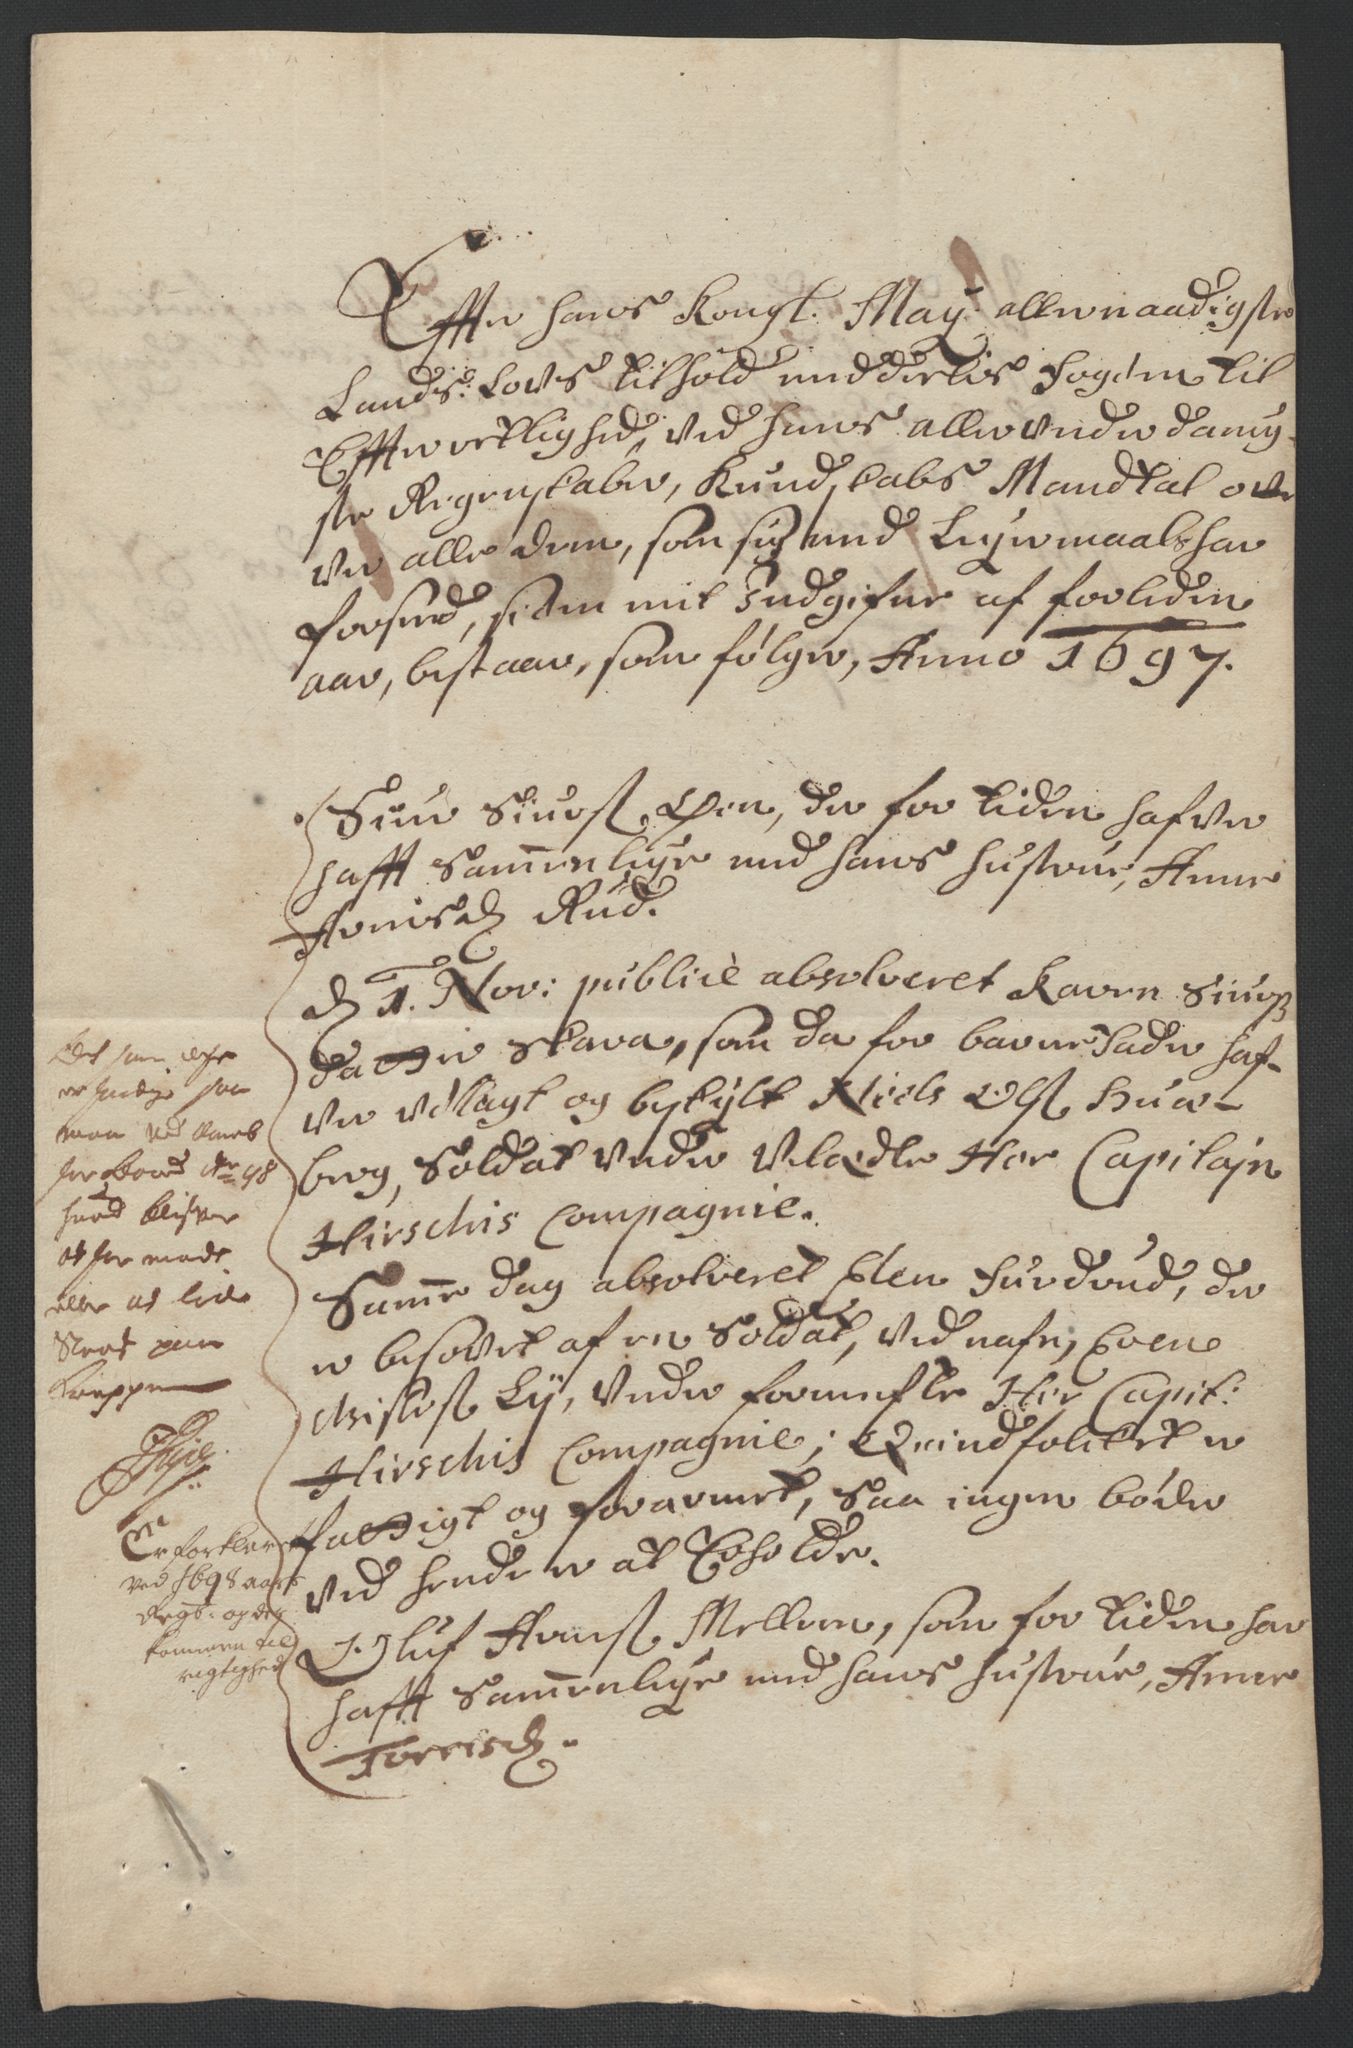 Effter hans Kongl. May. allernaadigste
Lands Lovs tilhold meddeelis Fogden til
Effterretlighed, ved hans allerunderdanig-
ste Regenskaber, Kundskabs Mandtal over
ver alle dem, som sig med Leyermaals har
forseed, siden mit Indgifne af forleden
aar, bestaar, som følger, Anno 1697.
Siur Siurs. Øen, der for tiden hafver
hafft Sammenleye med hans hustrue, Anne
Arnisd. Rud.
d. 1. Nov: publicè absolveret Karen Siurs
datter Skara, som da for barnefader haf-
ver udlagt og beskylt Niels Ols. Huus-
berg, Soldat under Velædle Her Capitajn
Hirschis Compagnie.
Samme dag absolveret Elen Furdrud, der
er besovet af en Soldat, ved nafn, Even
Christens. Ly, under formelte Her Capit:
Hirschis Compagnie; Qvindfolcket er
fattigt og forarmet, saa ingen bøder
ved hende er at Erholde.
Oluf Arnes. Mellem, som for tiden har
hafft Sammenleye med hans hustrue, Anne
Torrisd.
Det som icke
er
man ved
98
huad blifver
at
eller at lide
Straf paa
Kroppen
Thÿe
Er forklaret
ved 1698 aars
Regsk: og der
kommen til
rigtighed